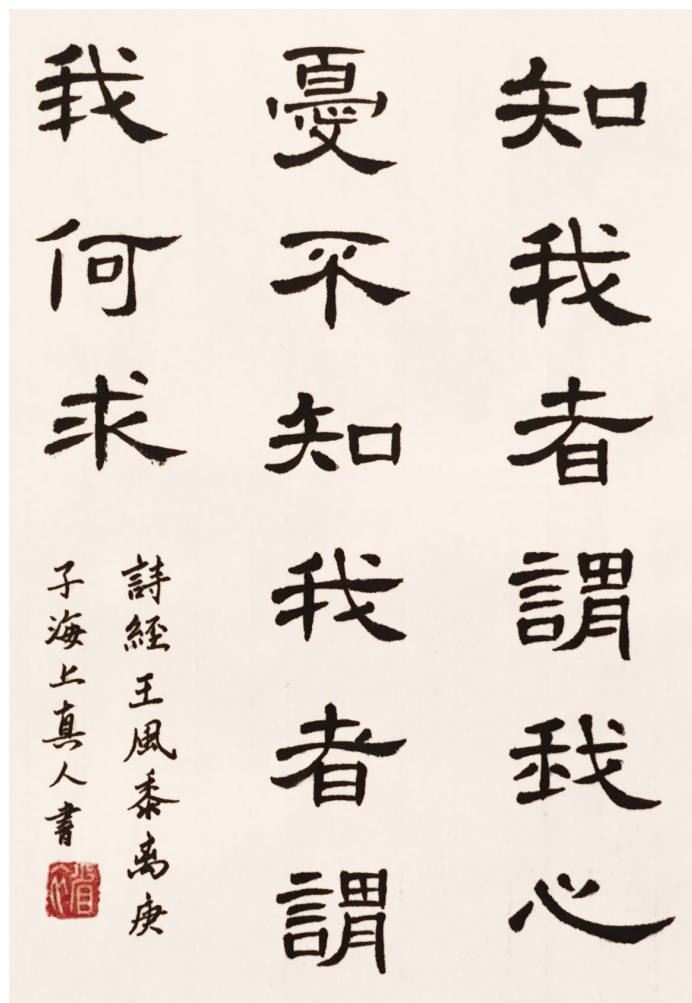 知我者謂我心
憂不知我者謂
我何求
詩經王風黍离庚
子海上真人書